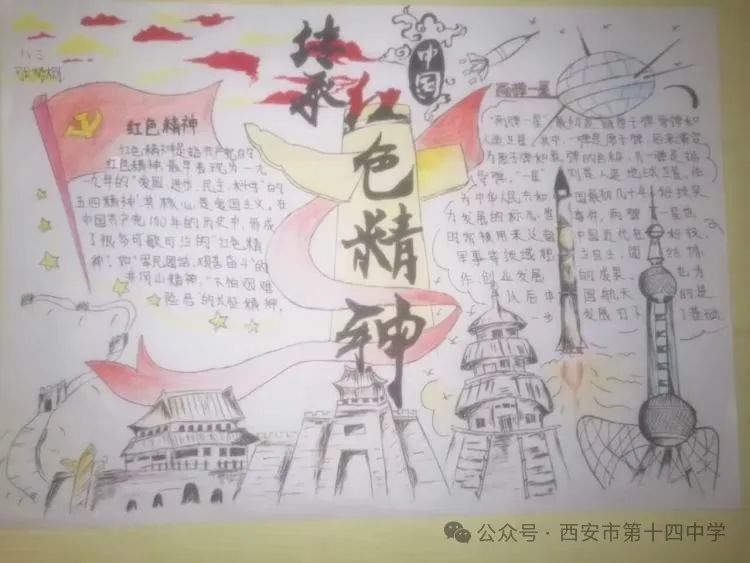 八三
传承
红色精神
中国
红色精神
红色精神是指共产党的
红色精神,最早表现为一九
一九年的"爱国、进步、民主、科学"的
五四精神,其核心是爱国主义。在
中国共产党100年的历史中,形成
了很多可歌可泣的"红色精
神",如"军民团结、艰苦奋斗"的
井冈山精神,"不怕艰难
险阻"的长征精神。
两弹一星
"两弹一星"最初是指原子弹、导弹和
人造卫星,其中,一弹是原子弹,后来演变
为原子弹和氢弹的合称,另一弹是指
导弹,"一星"则是人造地球卫星,
为中华人民共和国最初几十年科技
发展的标志性事件,两弹一星也
时常被用来
中国近代在科技、
军事等领域
自主、团结协
作、创业发展的成果。
从后来
国航天的
一步发展打下了基础
公众号·西安市第十四中学